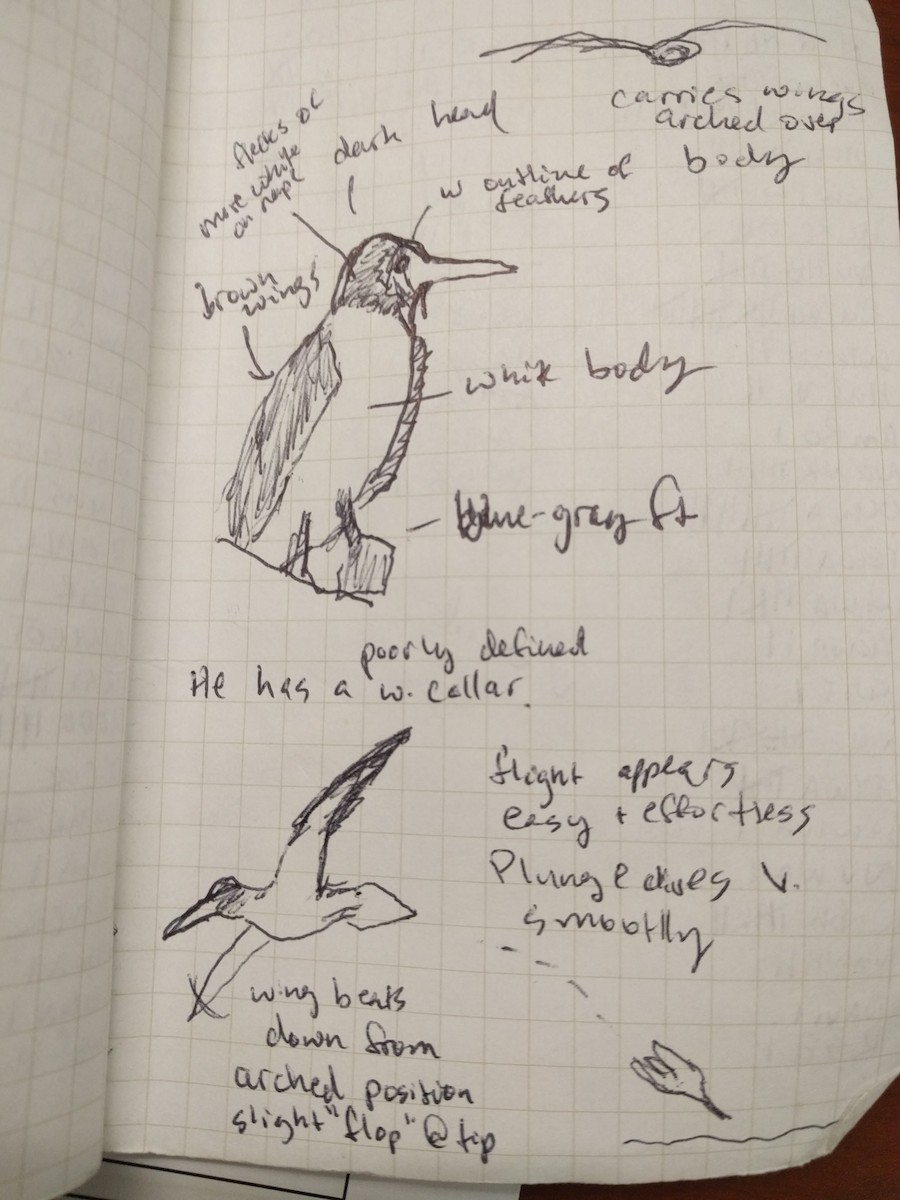 carries wings
arched over
body
flecks of
more white
on nape
dark head
w outline of
feathers
brown
wings
white body
blue-gray ft
poorly defined
He has a w. collar.
flight appears
easy + effortless
Plunge dives v.
smoothly
wing beats
down from
arched position
slight "flop" @ tip